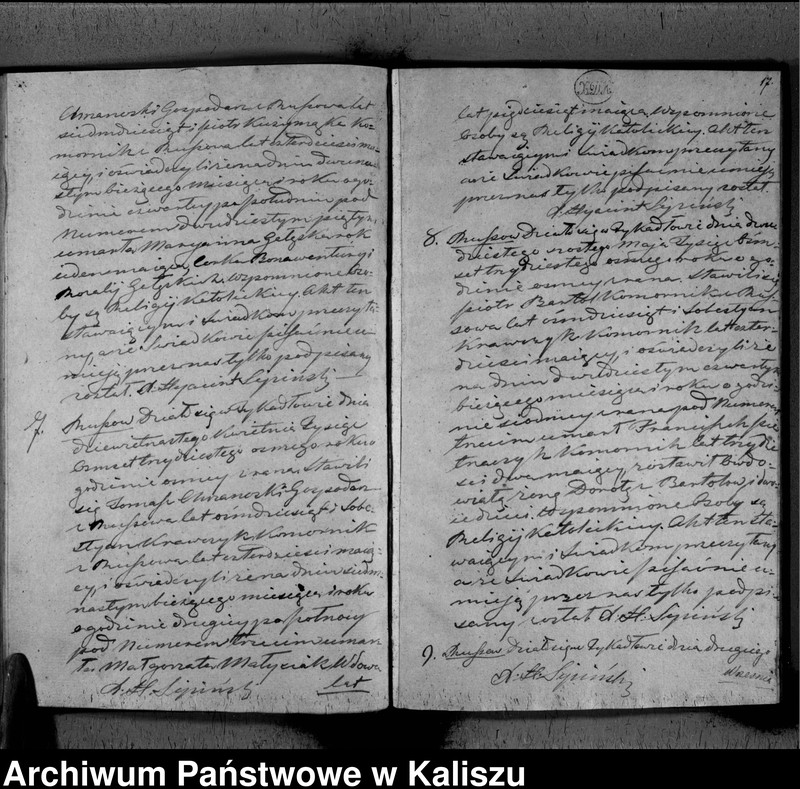 Chranoski Gospodarz z Russowa lat
siedmdziesiąt i piotr Kuszmą Ko
mornik z Russowa lat czterdzieści ma-
jący, i oświadczyli że na dniu
stym bieżącego miesiąca i roku o go-
dzinie czwarty po południu pod
Numerem dwudziestym piątym,
umarła Maryanna rok
jeden mająca, Corka Bonawentury i
Rozalij Wzpomnione oso-
by są Religij Katolickiey. Akt ten
stawaiącym i Świadkom przeczyta-
ny, a że Świadkowie pisać nie u-
mieją przez nas tylko podpisany
został. X. Hyacint Sypiński
7. Russow. Dział się w Tykadłowie dnia
dziewietnastego Kwietnia Tysiąc
osmset trzydziestego osmego roku o
godzinie osmey z rana. Stawili
się Tomasz Chranoski Gospodarz
z Russowa lat ośmdziesiąt i Sobe-
styan Krawczyk Komornik
z Russowa lat czterdzieści mają-
cy, i oświadczyli że na dniu siedm-
nastym bieżącego miesiąca i roku
o godzinie drugiey po połnocy
pod Numerem trzecim umar-
ła Małgorzata Matysiak Wdowa
X. H. Sypiński lat
17.
lat pięćdziesiąt mająca, Wzpomnione
osoby są Religij Katolickiey. Akt ten
stawaiącym i Świadkom przeczytany
a że Świadkowie pisać nie umieją
przez nas tylko podpisany został.
X. Hyacint Sypiński
8. Russow Dział się w Tykadłowie dnia dwu-
dziestego szostego Maja Tysiąc osm-
set trzydziestego osmego roku o go-
dzinie osmey z rana. Stawili się
piotr Bartos Komornik z Rus-
sowa lat ośmdziesiąt i Sobestyan
Krawczyk Komornik lat czter-
dzieści mający, i oświadczyli że
na dniu dwudziestym czwartym
bieżącego miesiąca i roku o godzi-
nie siodmey z rana pod Numerem
trzecim umarł Franciszek Pie-
traczyk Komornik lat trzydzie-
ści dwa mający, zostawił Owdo-
wiałą żonę Dorotę z Bartosow i dwo-
ie dzieci. Wzpomnione Osoby są
Religij Katolickiey. Akt ten sta-
waiącym i Świadkom przeczytany
a że Świadkowie pisać nie u-
mieją przez nas tylko podpi-
sany został X. H. Sypiński
9. Russow Dział się w Tykadłowie dnia drugiego
X. H. Sypiński Wrzesnia
Archiwum Państwowe w Kaliszu